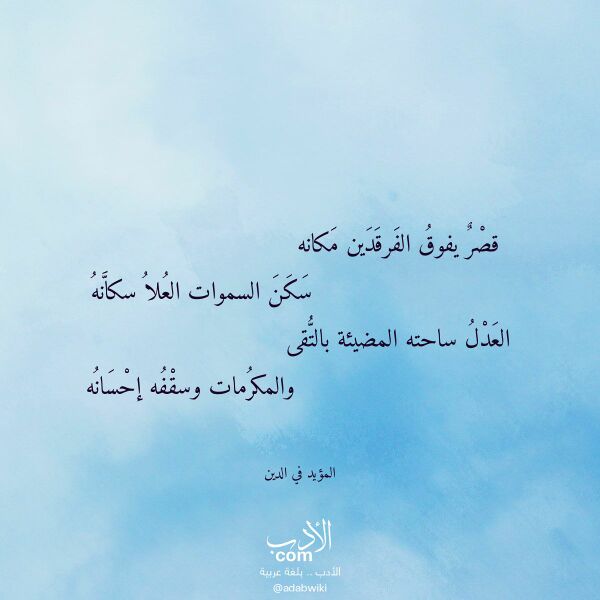 قصْرٌ يفوقُ الفَرقَدَين مَكانه
سَكَنَ السموات العُلاُ سكاَّنهُ
العَدْلُ ساحته المضيئة بالتُّقى
والمكرُمات وسقْفُه إحْسَانُه
المؤيد في الدين
الأدب
com
الأدب .. بلغة عربية
@adabwiki